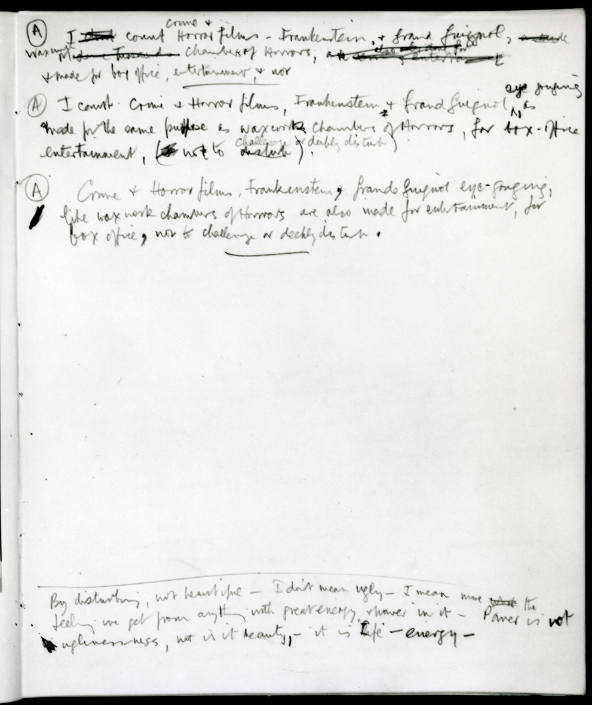 crime &
(A) I count Horror films - Frankenstein, & Grand Guignol,
waxwork Chambers of Horrors,
& made for box office, entertainment, & not
eye gouging
(A) I count Crime & Horror films, Frankenstein & Grand Guignol, as
made for the same purpose as waxworks Chambers of Horrors, for box-office
challenge or deeply disturb
entertainment, (not to disturb).
(A) Crime & Horror films, Frankenstein & Grande Guignol eye-gouging,
like waxwork chambers of Horrors are also made for entertainment, for
box office, not to challenge or deeply disturb.
By disturbing, not beautiful - I don't mean ugly - I mean more the
feeling we get from anything with great energy & power in it - Power is not
ugliness, nor is it beauty, - it is Life - energy -